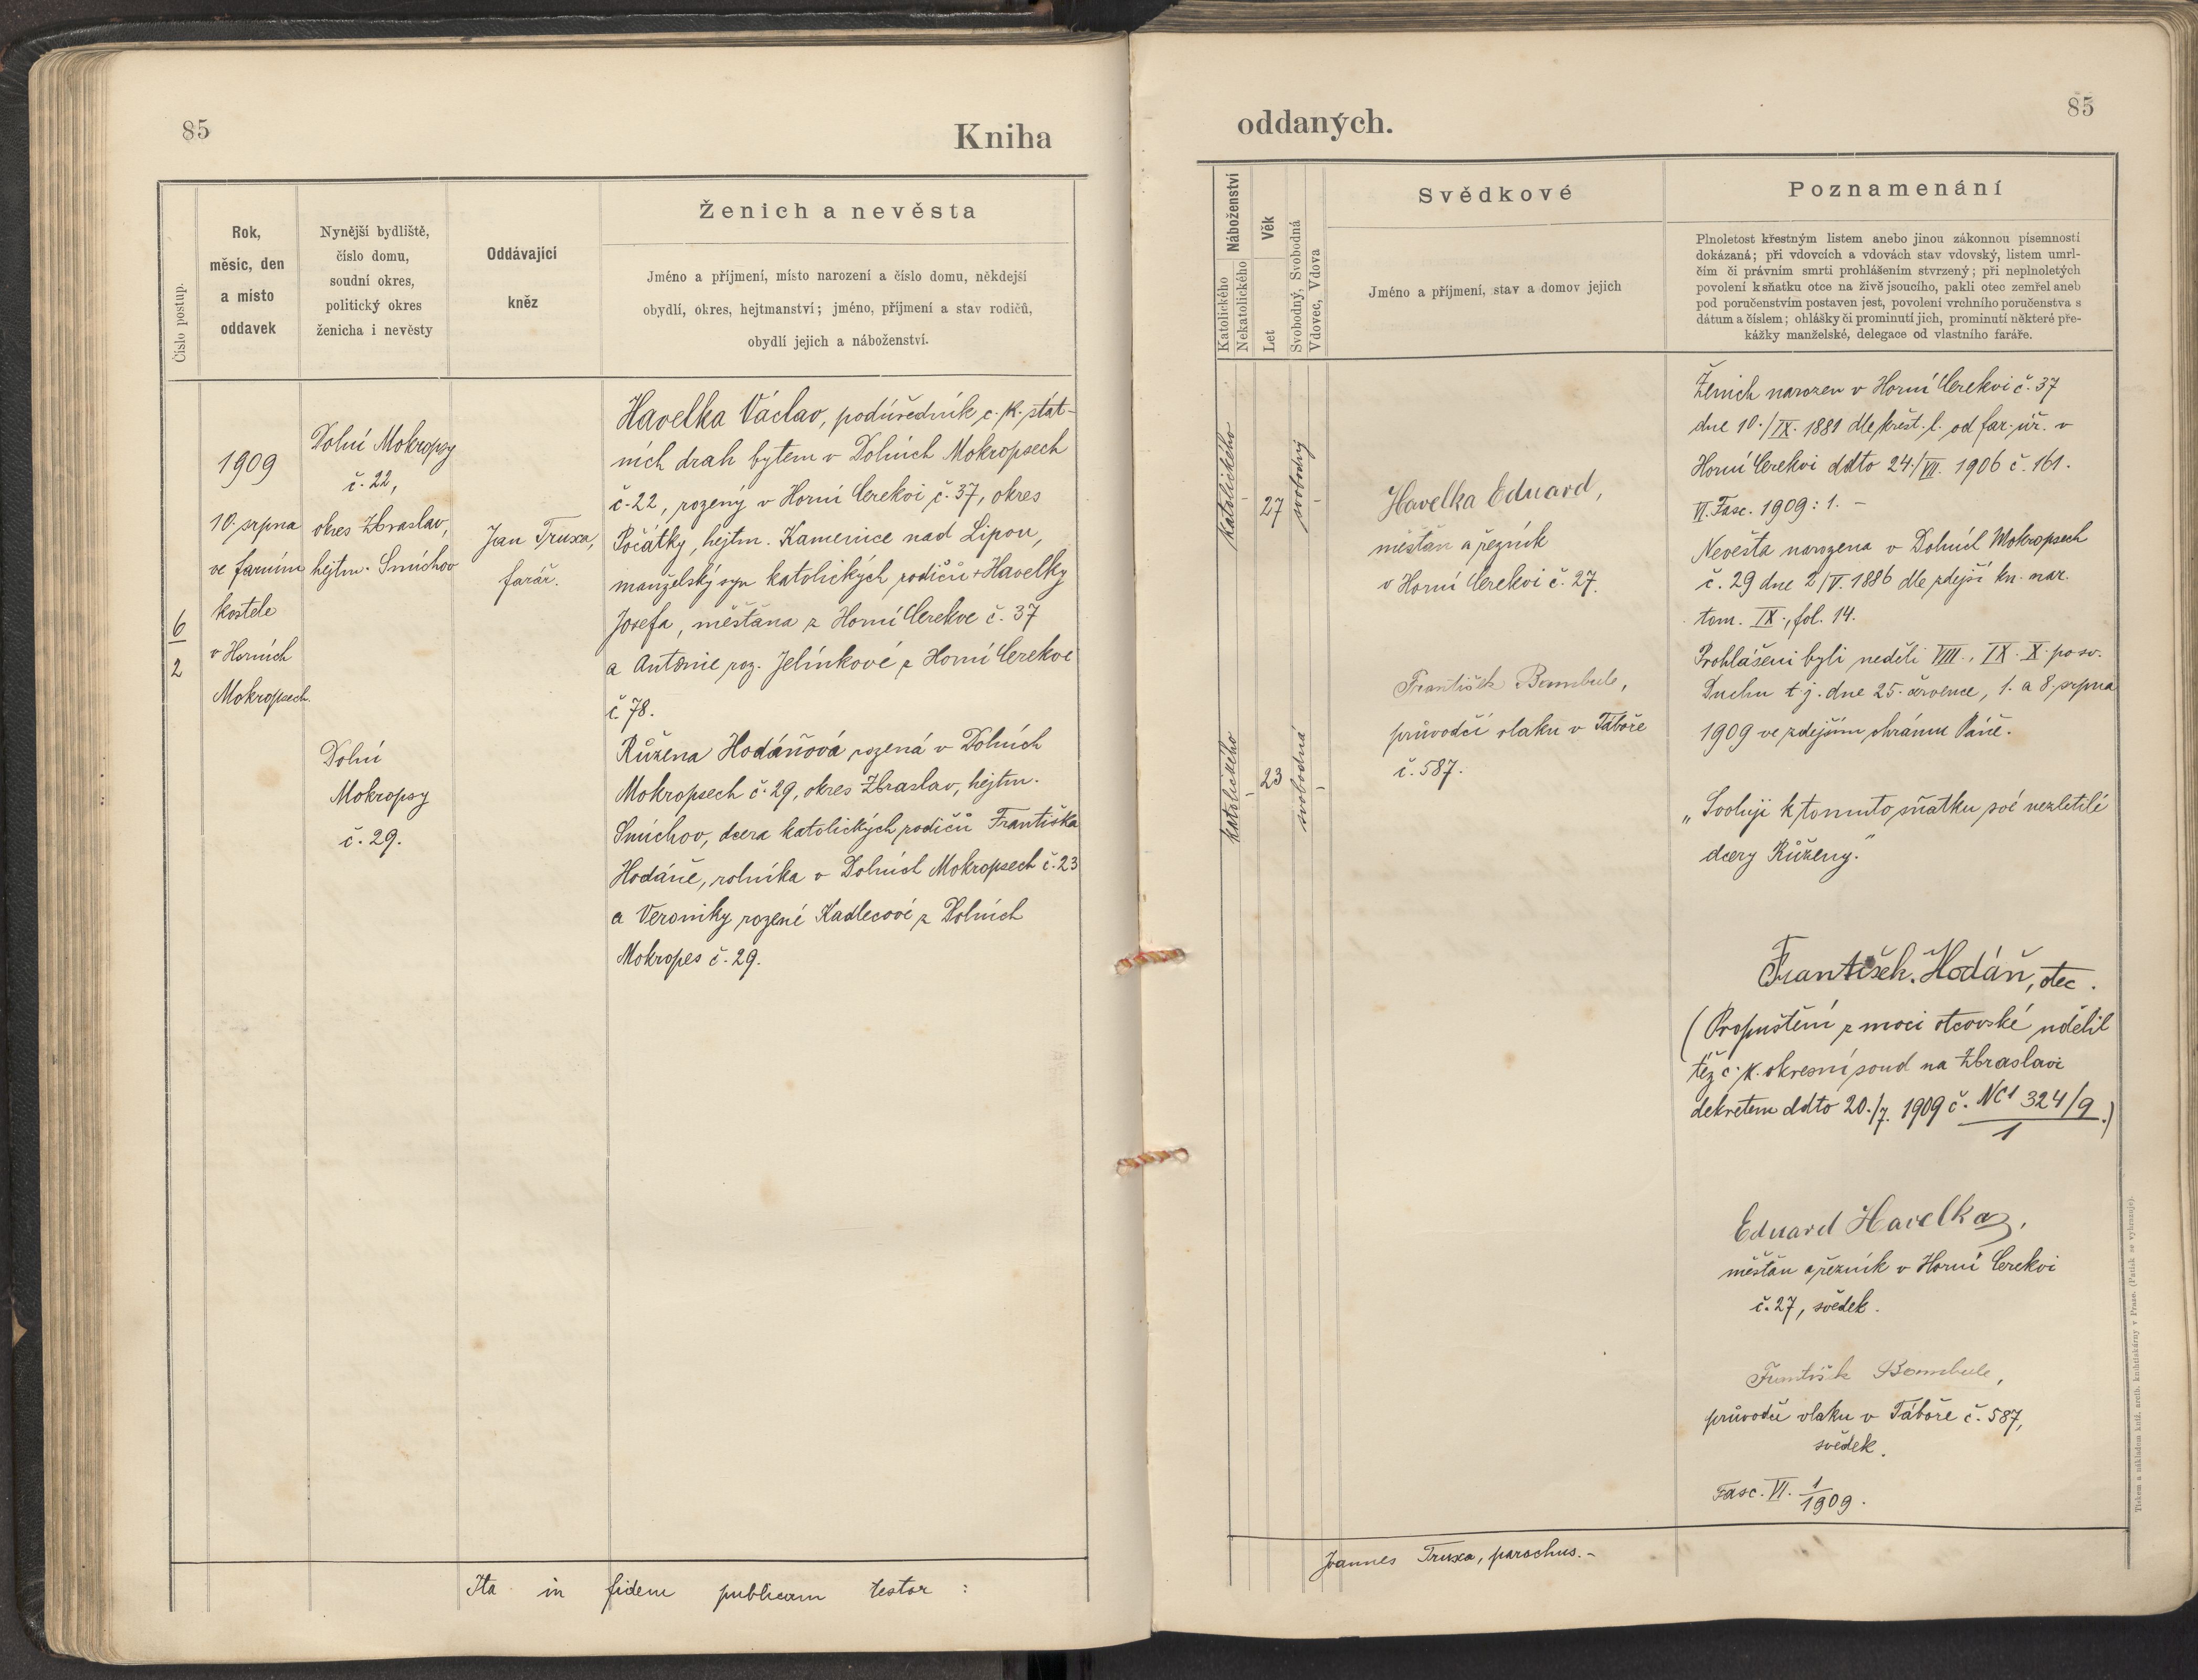 85
Kniha
Číslo postup.
Rok,
měsíc, den
a místo
oddavek
Nynější bydliště,
číslo domu,
soudní okres,
politický okres
ženicha i nevěsty
Oddávající
kněz
Ženich a nevěsta
Jméno a příjmení, místo narození a číslo domu, někdejší
obydlí, okres, hejtmanství; jméno, příjmení a stav rodičů,
obydlí jejich a náboženství.
6
2
1909
10. srpna
ve farním
kostele
v Horních
Mokropsech.
Dolní Mokropsy
č. 22,
okres Zbraslav,
hejtm. Smíchov
Dolní
Mokropsy
č. 29.
Jan Truxa,
farář.
Havelka Václav, podúředník c. k. stát-
ních drah bytem v Dolních Mokropsech
č. 22, rozený v Horní Cerekvi č. 37, okres
Počátky, hejtm. Kamenice nad Lipou,
manželský syn katolických rodičů + Havelky
Josefa, měšťana z Horní Cerekve č. 37
a Antonie roz. Jelínkové z Horní Cerekve
č. 78.
Růžena Hodáňová rozená v Dolních
Mokropsech č. 29, okres Zbraslav, hejtm.
Smíchov, dcera katolických rodičů Františka
Hodáně, rolníka v Dolních Mokropsech č. 23
a Veroniky rozené Kadlecové z Dolních
Mokropes č. 29.
Ita in fidem publicam testor :
oddaných.
85
Náboženství
Katolického
Nekatolického
Věk
Let
Svobodný, Svobodná
Vdovec, Vdova
Svědkové
Jméno a příjmení, stav a domov jejich
Poznamenání
Plnoletost křestným listem anebo jinou zákonnou písemností
dokázaná; při vdovcích a vdovách stav vdovský, listem umrl-
čím či právním smrti prohlášením stvrzený; při neplnoletých
povolení k sňatku otce na živě jsoucího, pakli otec zemřel aneb
pod poručenstvím postaven jest, povolení vrchního poručenstva s
dátum a číslem; ohlášky či prominutí jich, prominutí některé pře-
kážky manželské, delegace od vlastního faráře.
katolického
-
27
svobodný
-
katolického
-
23
svobodná
-
Havelka Eduard,
měšťan a řezník
v Horní Cerekvi č. 27.
František Bambule,
průvodčí vlaku v Táboře
č. 587.
Ženich narozen v Horní Cerekvi č. 37
dne 10./IX. 1881 dle křest. l. od far. úř. v
Horní Cerekvi ddto 24./VII. 1906 č. 161.
VI. Fasc. 1909: 1. -
Nevěsta narozena v Dolních Mokropsech
č. 29 dne 2/V. 1886 dle zdejší kn. nar.
tom. IX., fol. 14.
Prohlášeni byli neděli VIII., IX. X. po sv.
Duchu t. j. dne 25. července, 1. a 8. srpna
1909 ve zdejším chrámu Páně.
„Svoluji k tomuto sňatku své nezletilé
dcery Růženy."
František Hodáň, otec.
(Propuštění z moci otcovské udělil
též c. k. okresní soud na Zbraslavi
dekretem ddto 20./7. 1909 č. Nc I 324/9
1
.)
Eduard Havelka,
měšťan a řezník v Horní Cerekvi
č. 27, svědek.
František Bambule,
průvodčí vlaku v Táboře č. 587,
svědek.
Fasc. VI. 1
1909.
Joannes Truxa, parochus. -
Tiskem a nákladem kníž. arcib. knihtiskárny v Praze. (Patisk se vyhrazuje).